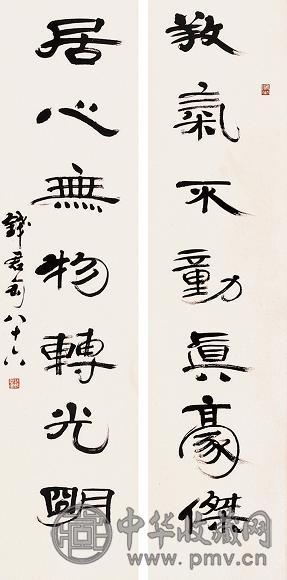 養氣不動眞豪傑
居心無物轉光明
錢君匋八十六
中华收藏网
www.pmv.cn